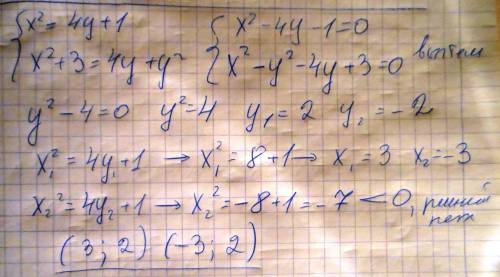 { x² = 4y + 1 { x² - 4y - 1 = 0
{ x² + 3 = 4y + y² { x² - y² - 4y + 3 = 0 вычтем
y² - 4 = 0 y² = 4 y₁ = 2 y₂ = -2
x₁² = 4y₁ + 1 → x₁² = 8 + 1 → x₁ = 3 x₂ = -3
x₂² = 4y₂ + 1 → x₂² = -8 + 1 = -7 < 0, решений нет
(3; 2) (-3; 2)